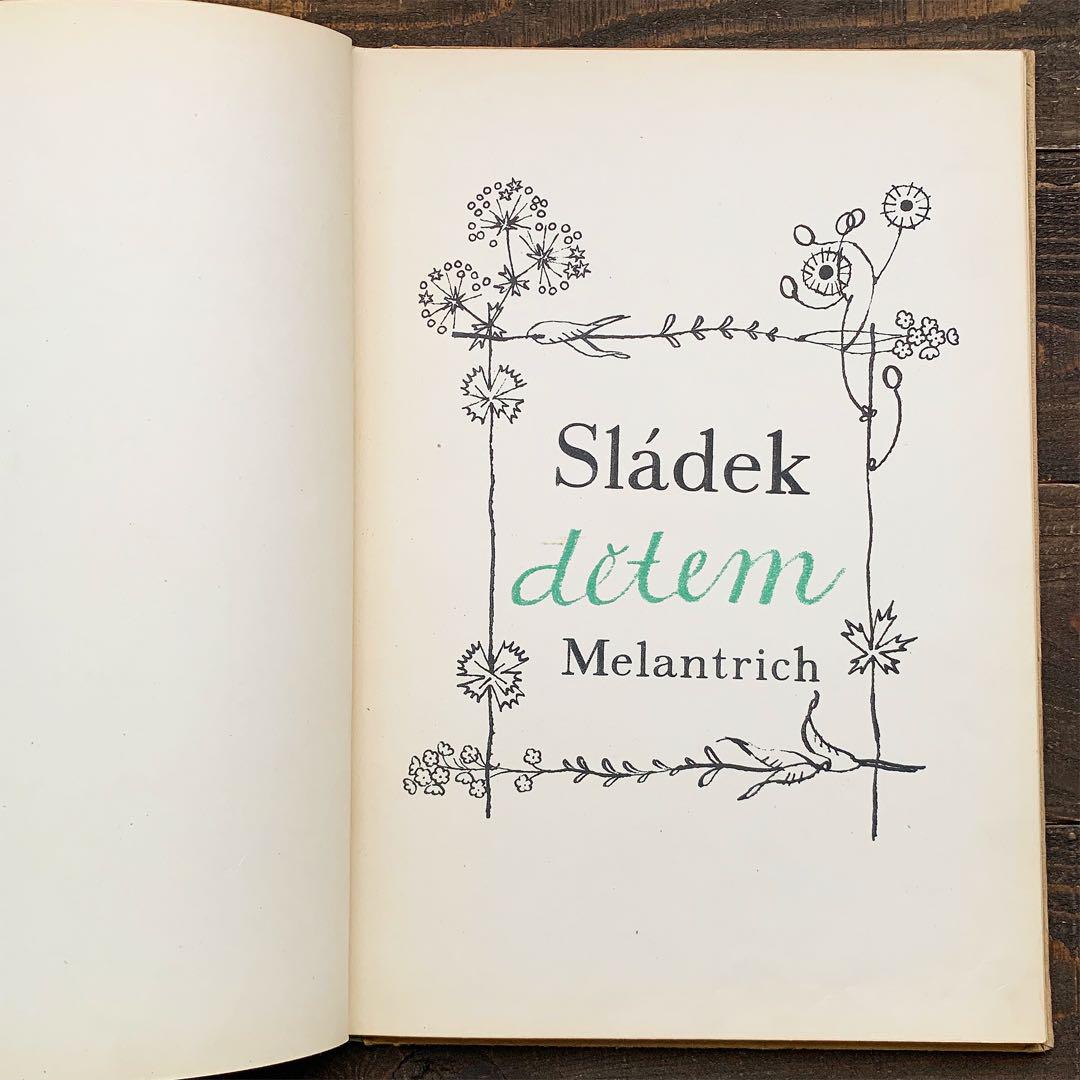 Sládek
dětem
Melantrich